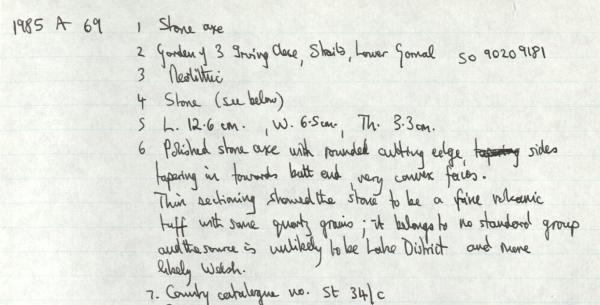 1985 A 69 1 Stone axe
2 Garden of 3 Irving Close, Straits, Lower Gornal SO 9020 9181
3 Neolithic
4 Stone (see below)
5 L. 12.6 cm. , W. 6.5 cm, Th. 3.3 cm.
6 Polished stone axe with rounded cutting edge, tapering sides
tapering in towards butt end, very convex faces.
Thin sectioning showed the stone to be a fine volcanic
tuff with some quartz grains; it belongs to no standard group
and the source is unlikely to be Lake District and more
likely Welsh.
7. County catalogue no. St 34/c